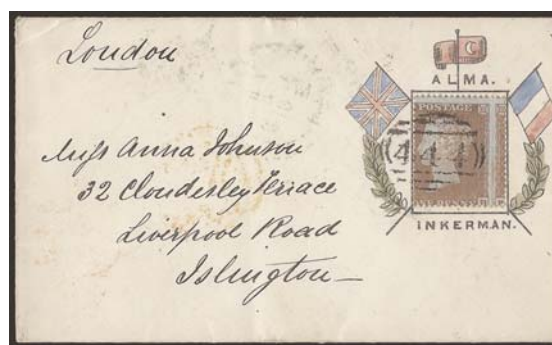 London
ALMA.
POSTAGE
444
INKERMAN.
Miss Anna Johnson
32 Cloudesley Terrace
Liverpool Road
Islington